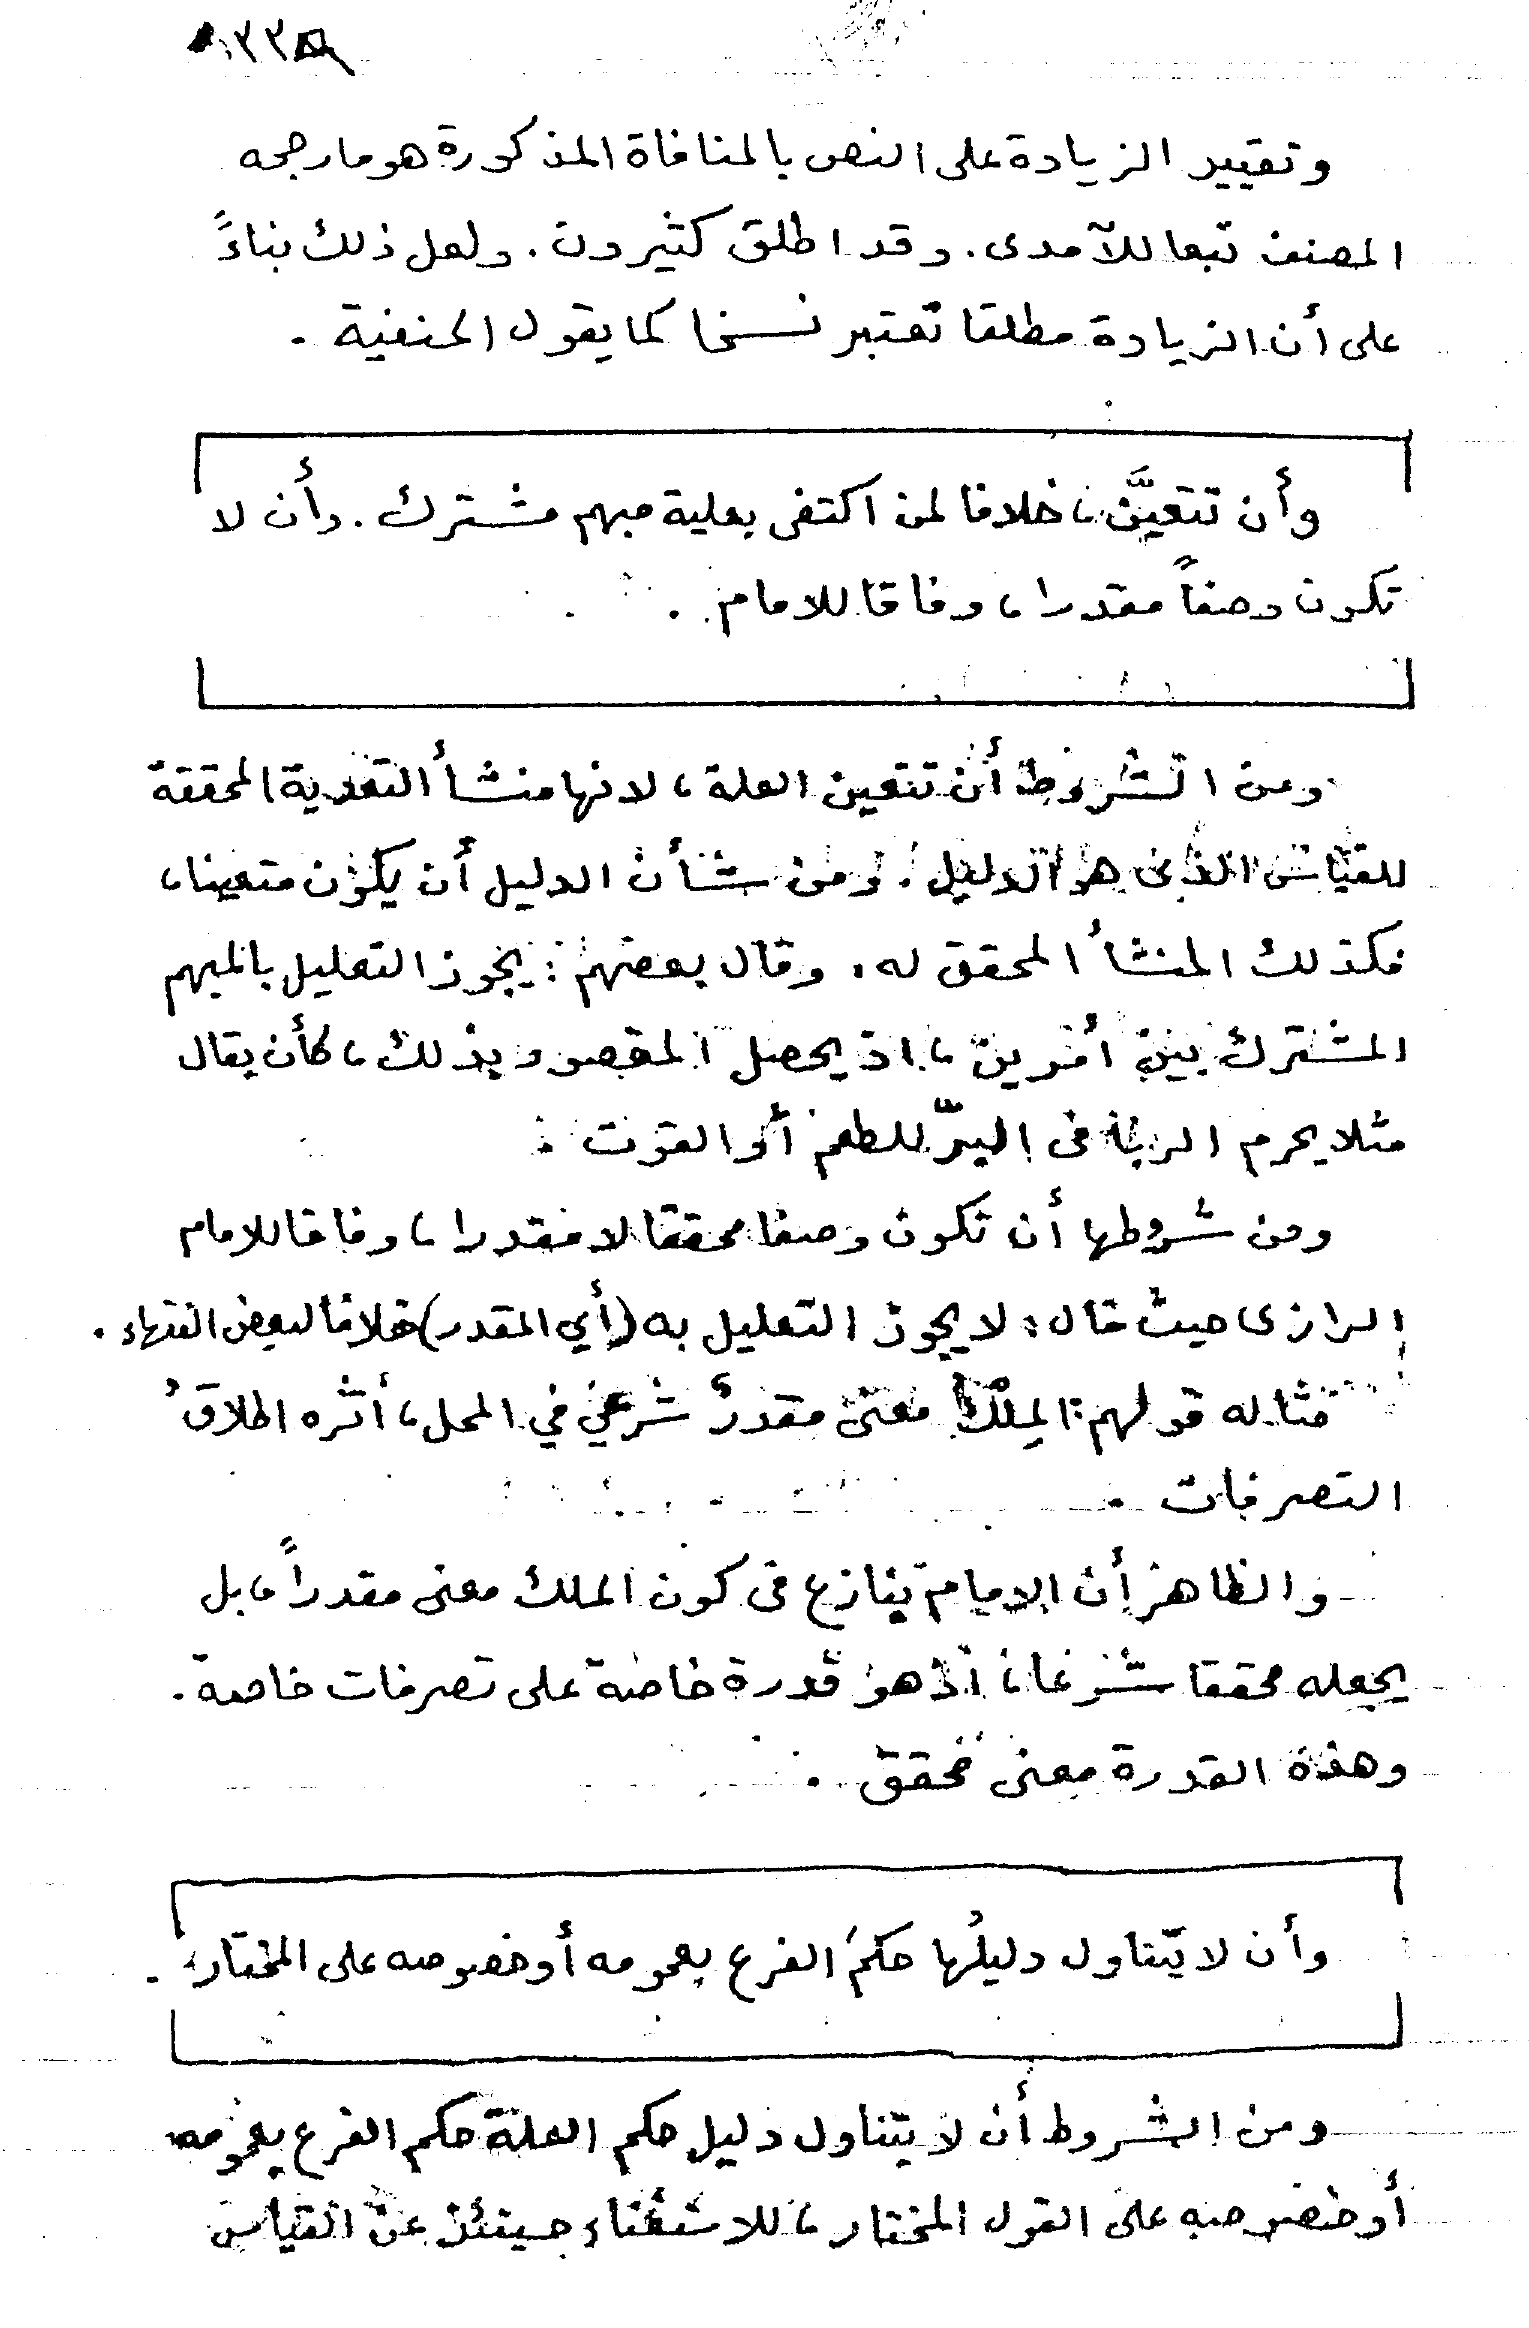 وتقييد الزيادة على النص بالمنافاة المذكورة هو ما رجحه
المصنف تبعا للآمدى. وقد اطلق كثيرون. ولعل ذلك بناءً
على أن الزيادة مطلقا تعتبر نسخا كما يقول الحنفية .
وأن تتعيَّن، خلافا لمن اكتفى بعلية مبهم مشترك. وأن لا
تكون وصفاً مقدرا، وفاقا للامام .
ومن الشروط أن تتعين العلة، لانها منشأ التعدية المحققة
للقياس الذى هو الدليل. ومن شأن الدليل أن يكون متعينا،
فكذلك المنشأ المحقق له. وقال بعضهم: يجوز التعليل بالمبهم
المشترك بين امرين، اذ يحصل المقصود بذلك، كأن يقال
مثلا يحرم الربا فى البرّ للطعم أو القوت .
ومن شروطها أن تكون وصفا محققا لا مقدرا، وفاقا للامام
الرازى حيث قال: لا يجوز التعليل به (أي المقدر) خلافا لبعض الفقهاء .
مثاله قولهم: المِلْكُ معنى مقدرٌ شرعيٌ في المحل، أثره اطلاقُ
التصرفات .
والظاهر أن الامام ينازع فى كون الملك معنى مقدراً، بل
يجعله محققا شرعا، اذ هو قدرة خاصة على تصرفات خاصة.
وهذه القدرة معنى محقق .
وأن لا يتناول دليلُها حكمَ الفرع بعمومه أو خصوصه على المختار .
ومن الشروط أن لا يتناول دليل حكم العلة حكم الفرع بعمومه
أو خصوصه على القول المختار، للاستغناء حينئذ عن القياس